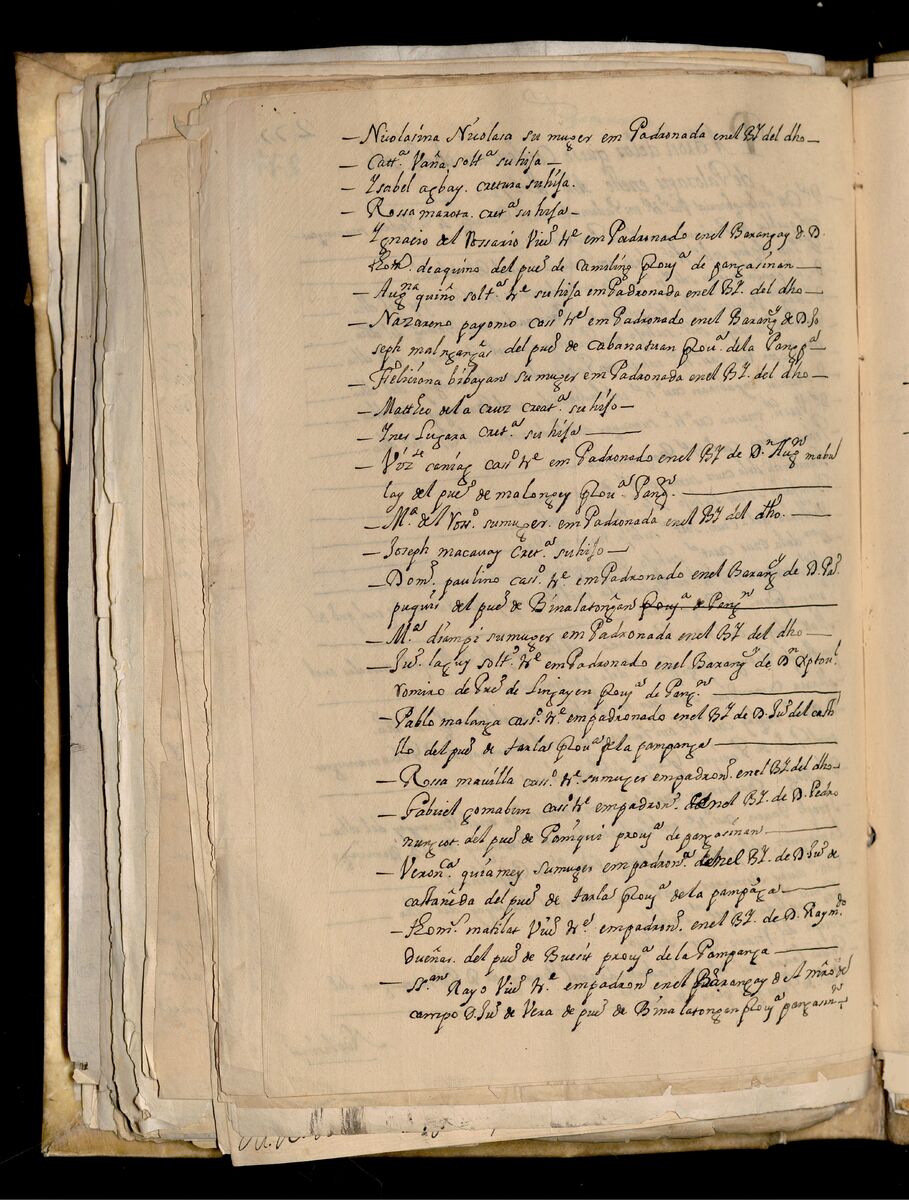 — Nicolasina Nicolasa su muger em Padronada enel BỸ del dho —
— Catt.ª Vaña, solt.ª su hija —
— Ysabel agbay. cretura su hija.
— Rossa marota. cret.ª su hija —
— Ygnacio del Rossario Viu.º Yᵉ em Padronado enel Barangay de D.
deaquino del pue.º de Camiling Prou.ª de pangasinan —
— Aug.na quiño solt.ª Yᵉ su hija em Padronada enel BỸ. del dho —
— Nazareno payomo cas.º Yᵉ em Padronado enel Barang.y de D. Jo
seph malngangas del pue.º de Cabanatuan Prou.ª dela Pamp.ª
— Feliciana bibayan su muger em Padronada enel BỸ. del dho —
— Mattheo dela Cruz creat.ª su hijo —
— Ynes Lugara cret.ª su hija —
— Viz.te caniag cas.º Yᵉ em Padronado enel BỸ de D.n Aug.n mabu
lay del pue.º de malongey Prou.ª Pang.n —
— M.ª del Ross.º su muger. em Padronada enel BỸ del dho. —
— Joseph macauay cret.ª su hijo —
— Dom.º paulino cas.º Yᵉ em Padronado enel Barang.y de D. Pas.
puquis del pue.º de Binalatongan Prou.ª de Pang.n
— M.ª diampi su muger em Padronada enel BỸ del dho —
— Ju.º laguy solt.º Yᵉ em Padronado enel Barang.y de D.n Xptoul.
romiro de Pue.º de Lingayen Prou.ª de Pang.n —
— Pablo malanga cas.º Yᵉ empadronado enel BỸ de D. Ju.º del casti
llo del pue.º de tarla Prou.ª dela pampanga —
— Rossa mauilla cas.º Yᵉ su muger empadron.ª enel BỸ del dho
— Gabriel gomabun cas.º Yᵉ empadron.º enel BỸ. de D. Pedro
nungot. del pue.º de Paniqui prou.ª de pangasinan —
— Veron.ca quiamey su muger empadron.ª denel BỸ. de D. Ju.º de
castañeda del pue.º de tarla Prou.ª dela pampaga —
— Thom.s matilat Viu.º Yᵉ empadron.º enel BỸ. de D. Raym.do
dueñas. del pue.º de Bucsit prou.ª de la Pampanga —
— Ss.an Rayo Viu.º Yᵉ. empadron.º enel Barangay del Mrõ de
campo D. Ju.º de Vera de pue.º de Binalatongan Prou.ª pangasin.n